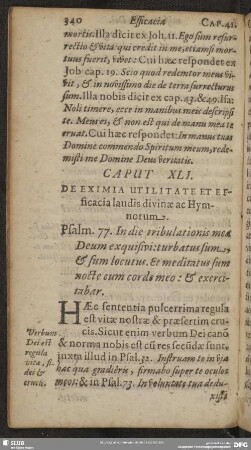 340 Efficacia CAP. 41.
mortis. Illa dicit ex Joh. 11. Ego sum resur-
rectio & vita: qui credit in me, etiamsi mor-
tuus fuerit, vivet: Cui hæc respondet ex
Job cap. 19. Scio quod redemtor meus vi-
vit, & in novissimo die de terra surrecturus
sum. Illa nobis dicit ex cap. 43. & 49. Isa:
Noli timere, ecce in manibus meis descripsi
te. Meus es, & non est qui de manu mea te
eruat. Cui hæc respondet: In manus tuas
Domine commendo Spiritum meum, rede-
misti me Domine Deus veritatis.
CAPUT XLI.
DE EXIMIA UTILITATE ET EF-
ficacia laudis divinæ ac Hym-
norum.
Psalm. 77. In die tribulationis meæ
Deum exquisivi: turbatus sum,
& sum locutus. Et meditatus sum
nocte cum corde meo: & exerci-
tabar.
HÆc sententia pulcerrima regula
est vitæ nostræ & præsertim cru-
cis. Sicut enim verbum Dei canõ
& norma nobis est cũ res secũdæ sunt,
juxta illud in Psal. 32. Instruam te in via
hac qua gradiêris, firmabo super te oculos
meos: & in Psal. 73. In voluntate tua dedu-
xisti
Verbum
Dei est
regula
vitæ, fi-
dei &
crucis.
SLUB